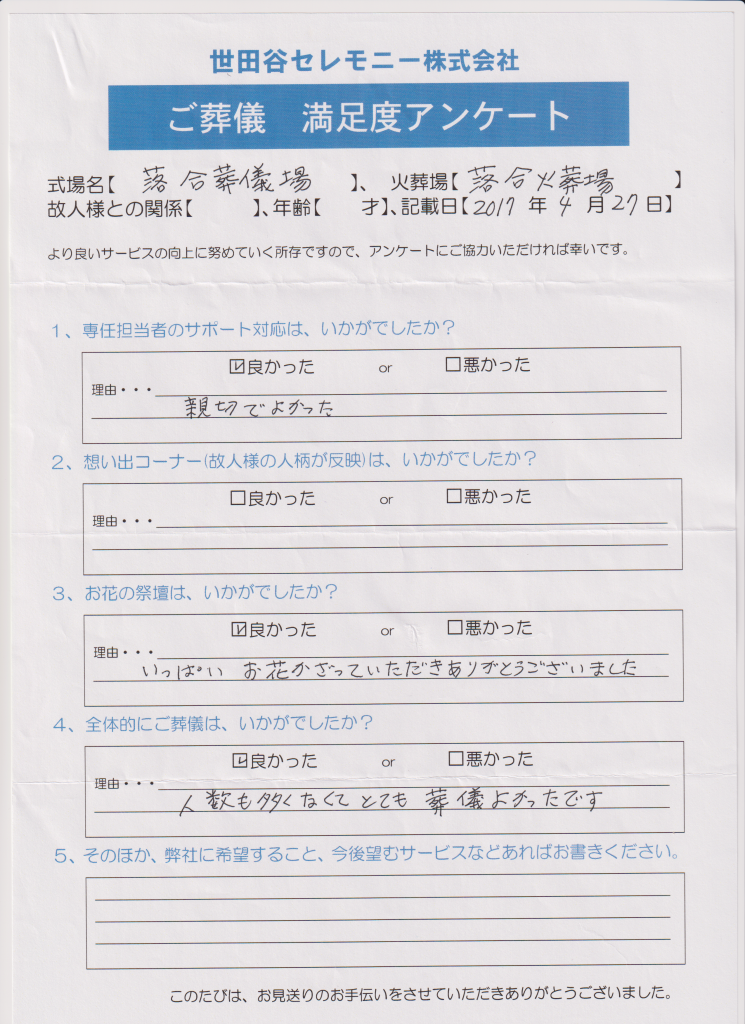 世田谷セレモニー株式会社
ご葬儀 満足度アンケート
式場名【 落合葬儀場 】、 火葬場【 落合火葬場 】
故人様との関係【 】、年齢【 才】、記載日【2017 年 4 月 27 日】
より良いサービスの向上に努めていく所存ですので、アンケートにご協力いただければ幸いです。
1、専任担当者のサポート対応は、いかがでしたか?
☑良かった or □悪かった
理由・・・
親切でよかった
2、想い出コーナー(故人様の人柄が反映)は、いかがでしたか?
□良かった or □悪かった
理由・・・
3、お花の祭壇は、いかがでしたか?
☑良かった or □悪かった
理由・・・
いっぱい お花かざっていただきありがとうございました
4、全体的にご葬儀は、いかがでしたか?
☑良かった or □悪かった
理由・・・
人数も多くなくて とても 葬儀よかったです
5、そのほか、弊社に希望すること、今後望むサービスなどあればお書きください。
このたびは、お見送りのお手伝いをさせていただきありがとうございました。